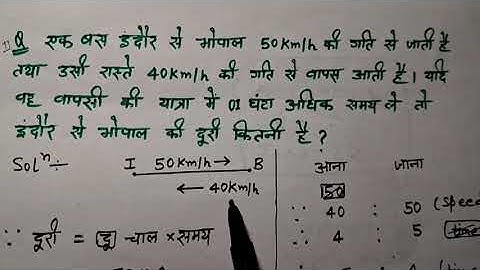 Q एक बस इंदौर से भोपाल 50 Km/h की गति से जाती है
तथा उसी रास्ते 40 Km/h की गति से वापस आती है। यदि
वह वापसी की यात्रा में 01 घंटा अधिक समय ले तो
इंदौर से भोपाल की दूरी कितनी है ?
Solⁿ ÷
I 50Km/h → B
← 40Km/h
आना जाना
50
∵ 40 : 50 (Speed
∴ 4 : 5 (time
∵ दूरी = चाल × समय